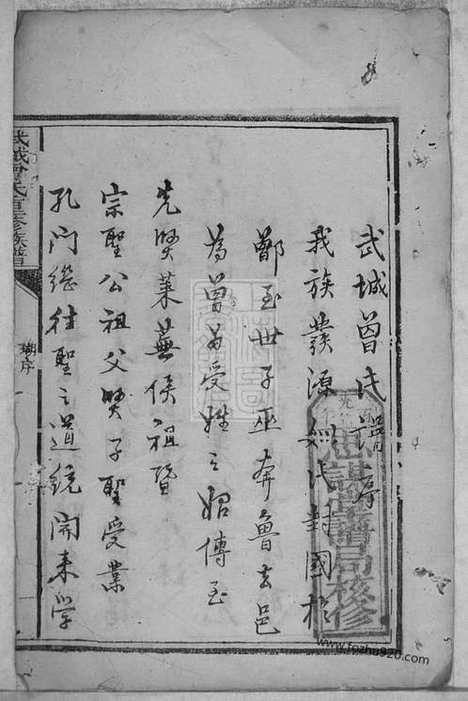 武城曾氏譜序
我族發源姒氏封國於
鄫至世子巫奔魯去邑
為曾為受姓之始傳至
先賢萊蕪侯祖暨
宗聖公祖父賢子聖受業
孔門繼往聖之道統開來學
武城曾氏重修族譜
譜局校修
www.fozhu920.com